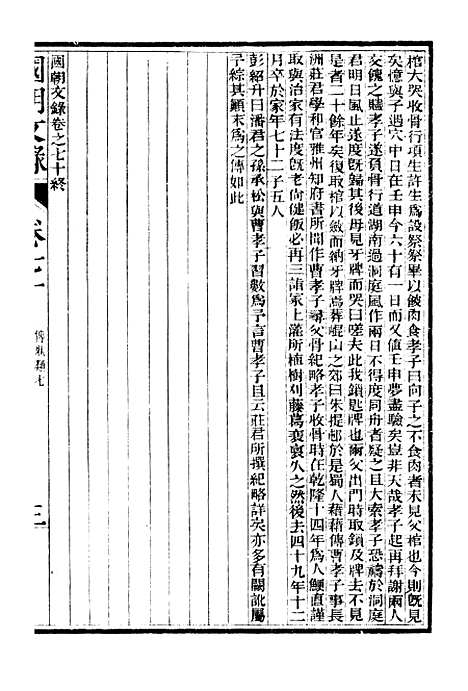 棺大哭收骨行項生許生爲設祭祭畢以餕肉食孝子曰向子之不食肉者未見父棺也今則旣見
矣憶與子遇穴中日在壬申今六十有一日而又値壬申夢盡驗矣豈非天哉孝子起再拜謝兩人
交餽之贐孝子遂負骨行道湖南過洞庭風作兩日不得度同舟者疑之且大索孝子恐禱於洞庭
君明日風止遂度旣歸其後母見牙牌而哭曰嗟夫此我鎖匙牌也爾父出門時取鎖及牌去不見
是者二十餘年矣復取棺以斂而納牙牌焉葬崐山之郊曰朱提邨於是蜀人藉藉傳曹孝子事長
洲莊君學和官雅州知府書所聞作曹孝子尋父骨紀略孝子收骨時在乾隆十四年爲人鯁直謹
取與治家有法度旣老尚健飯必再三詣冢上灌所植樹刈藤蔓裵裵久之然後去四十九年十二
月卒於家年七十二子五人
彭紹升曰潘君之孫承松與曹孝子習數爲予言曹孝子且云莊君所撰紀略詳矣亦多有闕訛屬
予綜其顚末爲之傳如此
國朝文錄卷之七十終
國朝文錄
卷七十
傳狀類七